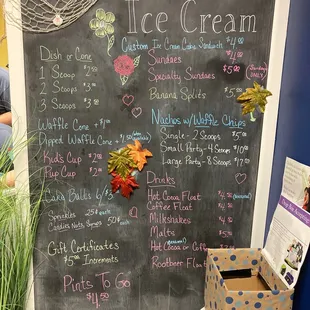 Ice Cream
Dish or Cone
1 Scoop $2
2 Scoops $3
3 Scoops $3
Waffle Cone + $1
Dipped Waffle Cone
Kid's Cup $2
Pup Cup $2
Cake Balls $3
Sprinkles 25¢
Candies Nuts Syrups 50¢
Gift Certificates
$5 Increments
Pints To Go
Custom Ice Cream Cookie Sandwich $4
Sundaes $4
Specialty Sundaes $5
Banana Splits $5
Nachos w/ Waffle Chips
Single - 2 Scoops $5
Small Party - 4 Scoops $10
Large Party - 8 Scoops
Drinks
Hot Cocoa Float
Coffee Float
Milkshakes
Malts
Hot Cocoa or Coffee
Rootbeer Float